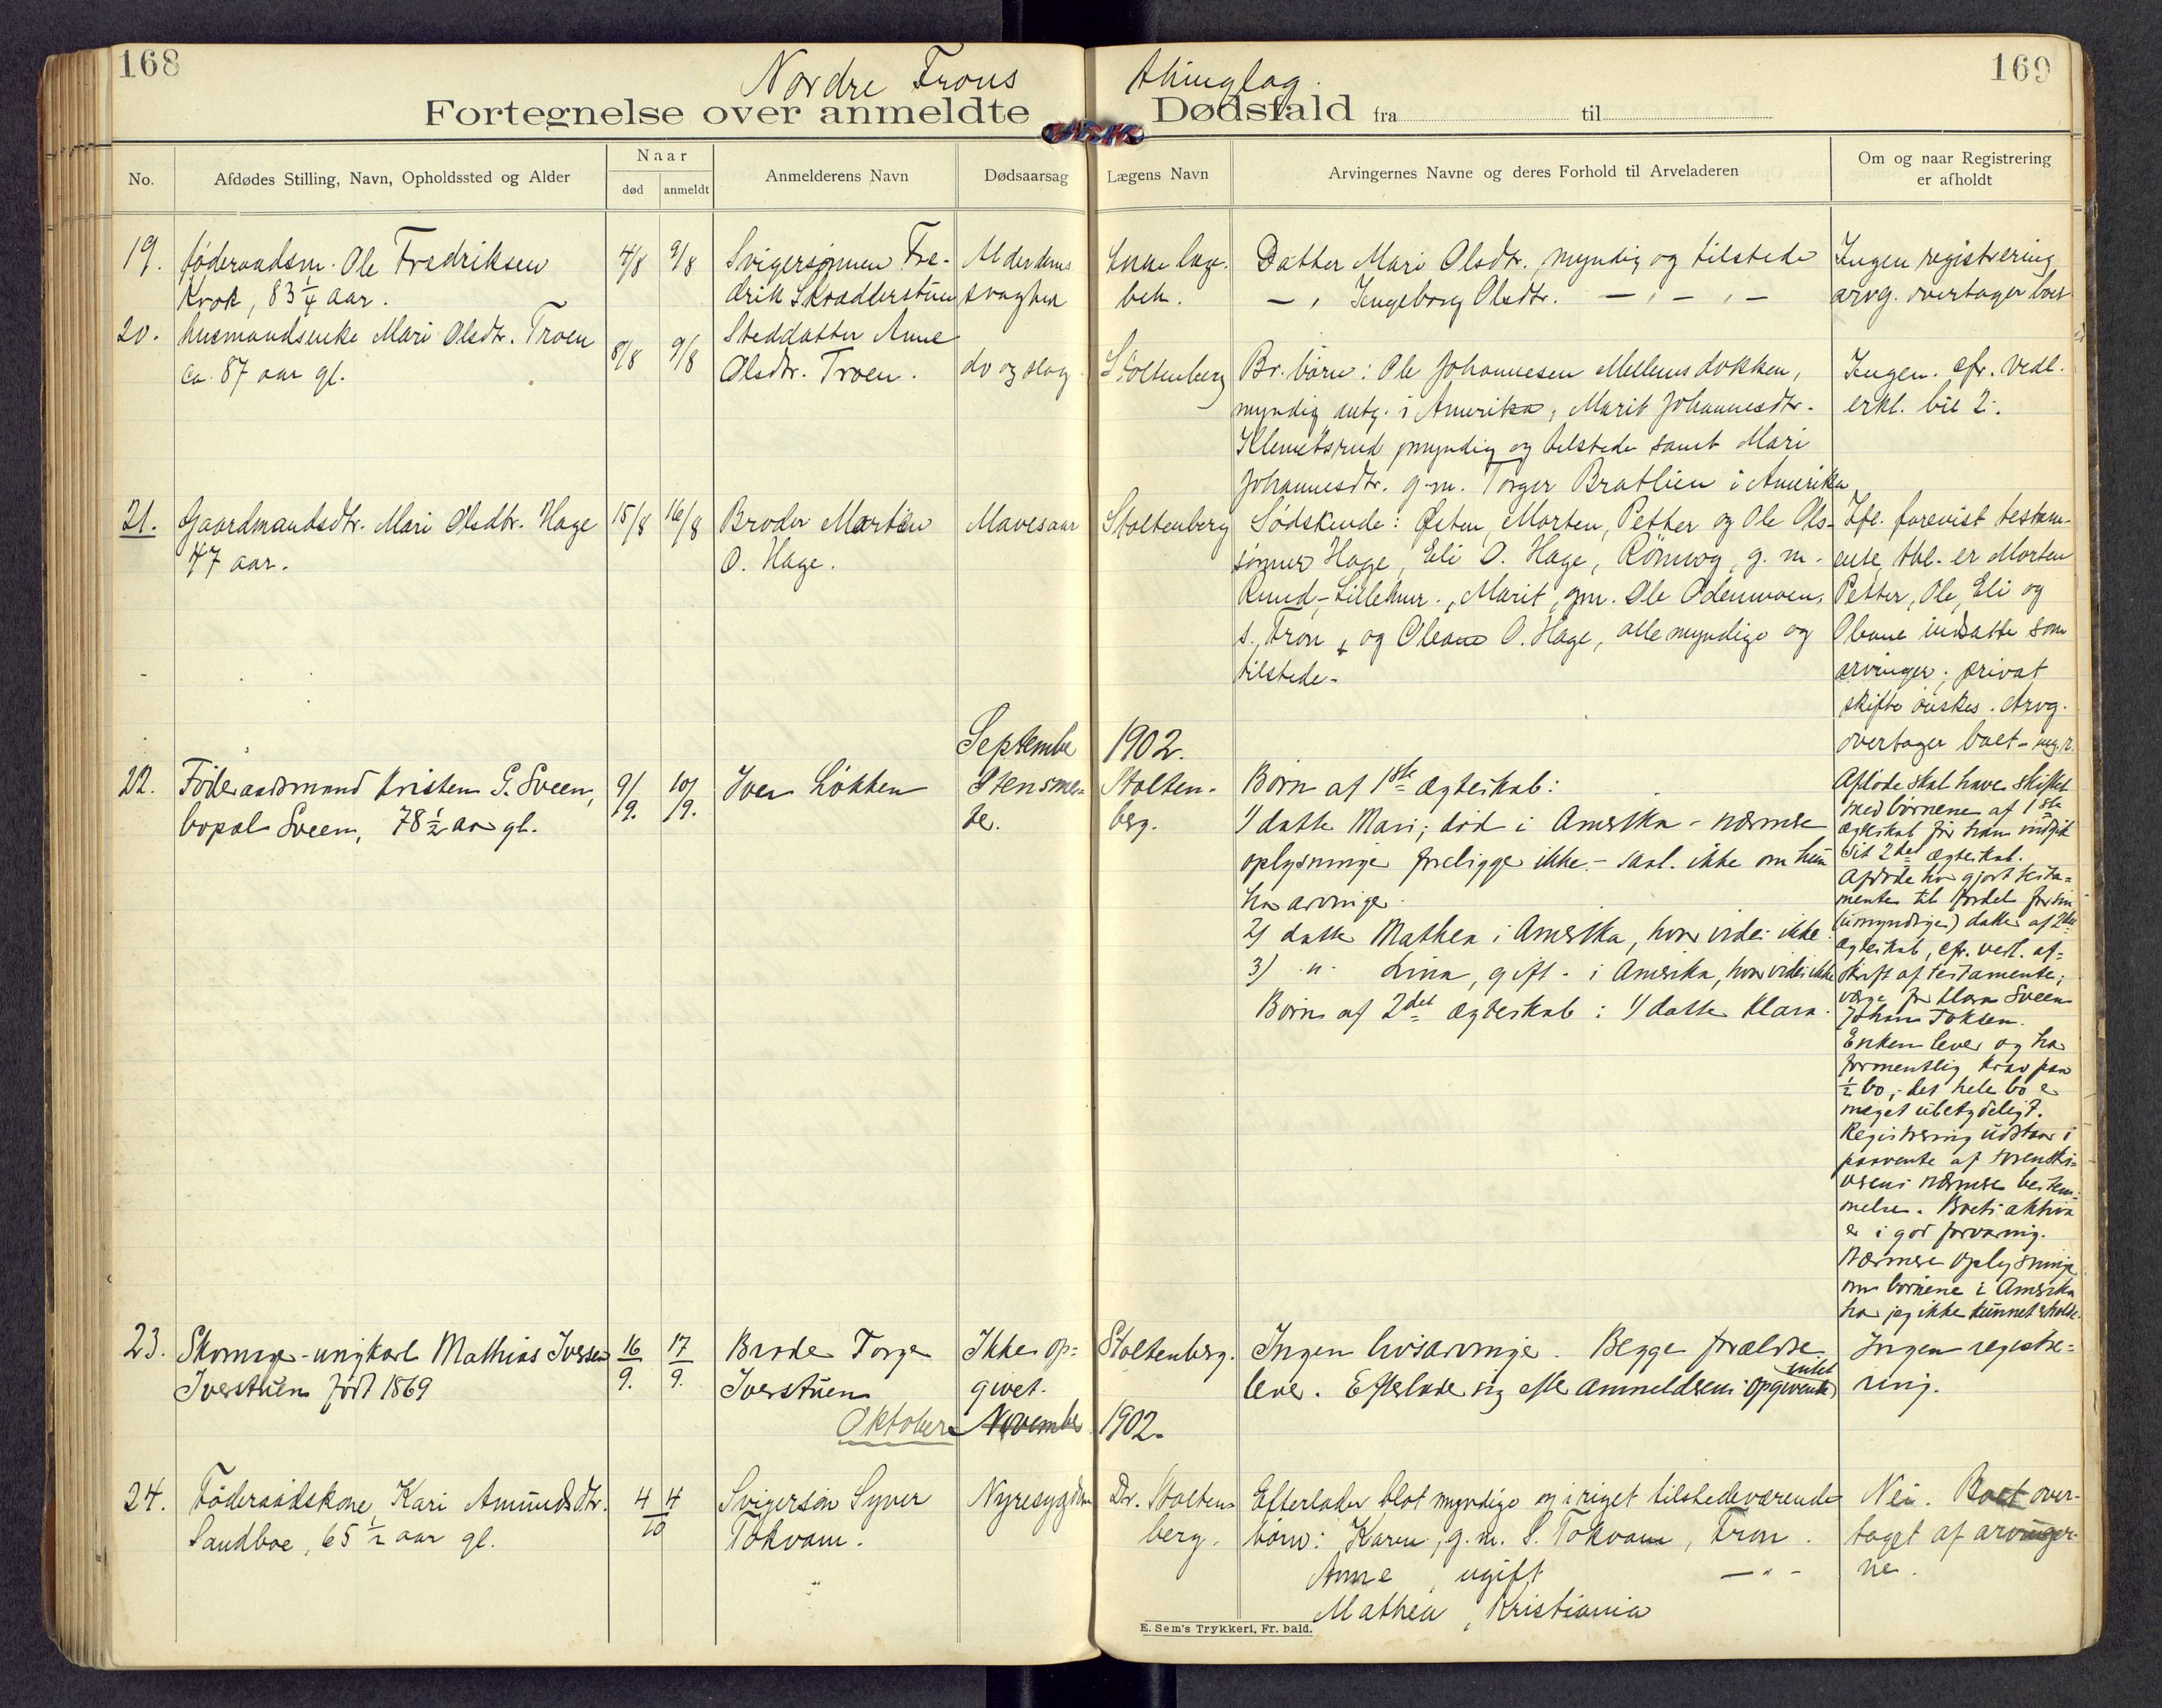 168
169
Nordre Frons thinglag.
Fortegnelse over anmeldte Dødsfald fra til
No.
Afdødes Stilling, Navn, Opholdssted og Alder
Naar
død
anmeldt
Anmelderens Navn
Dødsaarsag
Lægens Navn
Arvingernes Navne og deres Forhold til Arveladeren
Om og naar Registrering
er afholdt
19.
føderaadsm. Ole Fredriksen
Krok, 83 1/4 aar.
4/8
9/8
Svigersønnen Fre-
drik Skrædderstuen
Alderdoms
svaghed
bek.
Datter Mari Olsdtr. myndig og tilstede
— " Ingeborg Olsdtr. — " — " —
Ingen registrering
arvg. overtager boet
20.
husmandsenke Mari Olsdtr. Troen
ca. 87 aar gl.
8/8
9/8
Steddatter Anne
Olsdtr. Troen.
do og slag
Stoltenberg
Br. børn: Ole Johannesen Mellemsdokken,
myndig antg. i Amerika, Marit Johannesdtr.
Klemetsrud myndig og tilstede samt Mari
Johannesdtr. g. m. Torger Bratlien i Amerika
Ingen. cfr. vedl.
erkl. bil 2.
21.
Gaardmandsdtr. Mari Olsdtr. Hage
47 aar.
15/8
16/8
Broder Morten
O. Hage.
Mavesaar
Stoltenberg
Sødskende: Østen, Morten, Petter og Ole Ols-
sønner Hage, Eli O. Hage, Rønnog, g. m.
Ruud, Lillehmr., Marit, gm. Ole Odenmoen,
s. Fron, og Oleane O. Hage, alle myndige og
tilstede.
Ifl. forevist testam-
ente, thl. er Morten
Petter, Ole, Eli og
Oleane indsatte som
arvinger; privat
skifte ønskes. Arvg.
overtager boet -
September 1902.
22.
Føderaadsmand Kristen G. Sveen,
bopæl Sveen, 78 1/2 aar gl.
9/9.
10/9.
Iver Løkken
Stensme-
te.
Stolten-
berg.
Børn af 1ste ægteskab:
1) datter Mari, død i Amerika - nærmere
oplysninger foreligger ikke. - saal. ikke om hun
har arvinger.
2) datter Mathea i Amerika, hvor vides ikke.
3) " Lina, gift - i Amerika, hvor vides ikke
Børn af 2det ægteskab: 1) datter Klara.
Afdøde skal have skiftet
med børnene af 1ste
ægteskab før han indgik
sit 2det ægteskab.
Afdøde har gjort testa-
mente til fordel for sin
(umyndige) datter af 2det
ægteskab, cfr. vedl. af-
skrift af testamente;
værge for Klara Sveen
Johan Toksen.
Enken lever og har
formentlig krav paa
1/2 bo; det hele bo er
meget ubetydeligt.
Registrering udstaar i
paavente af sorenskri-
verens nærmere bestem-
melse. Boets aktiva
er i god forvaring.
Nærmere oplysninger
om børnene i Amerika
har jeg ikke kunnet erholde.
23.
Skomager-ungkarl Mathias Iversen
Iverstuen født 1869
16/9.
17/9.
Broder Torger
Iverstuen
Ikke op-
givet.
Stoltenberg.
Ingen livsarvinger. Begge forældre
lever. Efterlader sig efter anmelderens opgivende intet
Ingen registre-
ring.
Oktober November 1902.
24.
Føderaadskone Kari Amundsdtr.
Sandboe, 65 1/2 aar gl.
4 4
10
Svigersøn Syver
Tokvam.
Nyresygdom
Dr. Stolten-
berg.
Efterlader blot myndige og i riget tilstedeværende
børn: Karen, g. m. S. Tokvam, Fron.
Anne, ugift — " —
Mathea, Kristiania
Nei. Boet over-
taget af arvinger-
ne.
E. Sem's Trykkeri, Fr. hald.